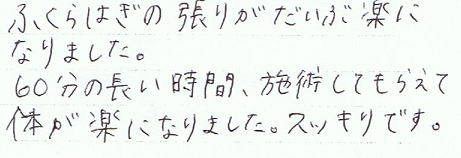 ふくらはぎの張りがだいぶ楽に
なりました。
60分の長い時間、施術してもらえて
体が楽になりました。スッキリです。